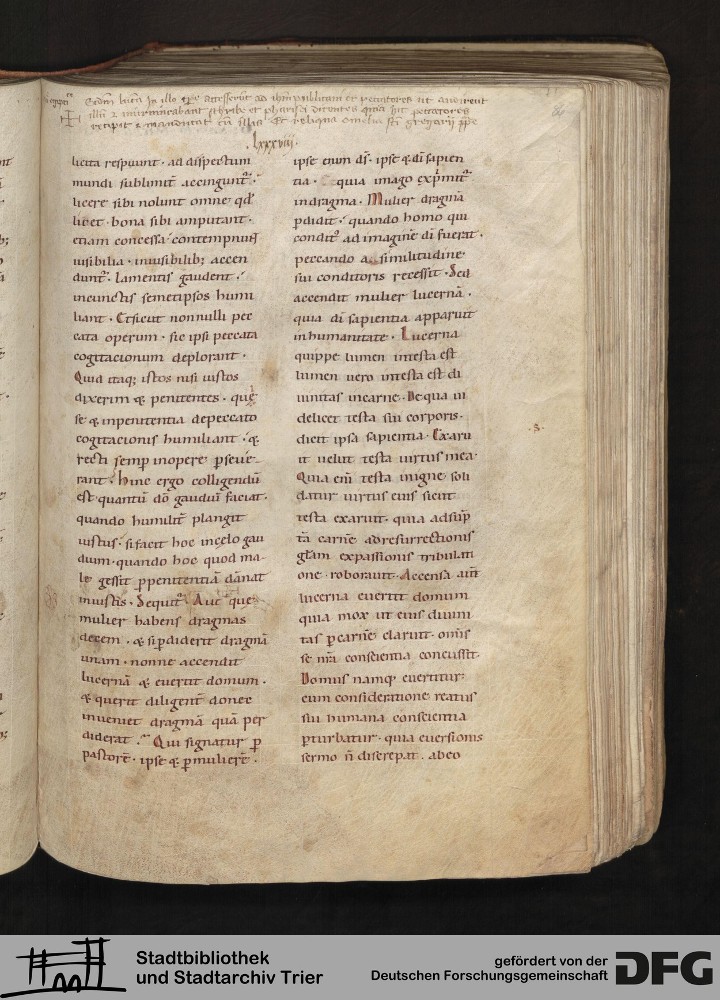 Scdm lucam In illo tpre accesserunt ad ihm publicani et peccatores ut audirent
illu 2 murmurabant scribe et pharisei dicentes quia hic peccatores
recipit 2 manducat cu illis Et reliqua omelia sci gregorii ppe
. lxxxviii .
licita respuunt · ad despectum
mundi sublimit accingunt ·
licere sibi nolunt omne qd
libet · bona sibi amputant ·
etiam concessa · contempnunt
uisibilia · inuisibilib; accen
dunt · lamentis gaudent ·
incunctis semetipsos humi
liant · Et sicut nonnulli pec
cata operum · sic ipsi peccata
cogitacionum deplorant ·
Quid itaq; istos nisi iustos
dixerim & penitentes · que
se & inpenitentia depeccato
cogitacionis humiliant · &
recti semp inopere pseue-
rant · hinc ergo colligendu
est quantu do gaudiu faciat ·
quando humilit plangit
iustus · si facit hoc incelo gau
dium · quando hoc quod ma-
le gessit ppenitentia danat
iniustus · Sequit · Aut que
mulier habens dragmas
decem · & si pdiderit dragma
unam · nonne accendit
lucerna & euertit domum ·
& querit diligent donec
inueniet dragma qua per
diderat · Qui signatur p
pastore · ipse & p muliere ·
ipse enim ds · ipse & di sapien
tia · Et quia imago exprimit
indragma · Mulier dragma
pdidit · quando homo qui
condit ad imagine di fuerat ·
peccando a similitudine
sui conditoris recessit · Sed
accendit mulier lucerna ·
quia di sapientia apparuit
inhumanitate · Lucerna
quippe lumen intesta est
lumen uero intesta est di
uinitas incarne · De qua ui
delicet testa sui corporis ·
dicit ipsa sapientia · Exaru
it uelut testa uirtus mea ·
Quia eni testa inigne soli
datur uirtus eius sicut
testa exaruit · quia adsup
ta carne adresurrectionis
glam expassionis tribulati
one · roborauit · Accensa aut
lucerna euertit domum
quia mox ut eius diuini
tas p carne claruit · omis
se nra conscientia concussit ·
Domus namq euertitur
cum consideratione reatus
sui humana conscientia
pturbatur · quia euersionis
sermo n discrepat · abeo
Stadtbibliothek
und Stadtarchiv Trier
gefördert von der
Deutschen Forschungsgemeinschaft
DFG